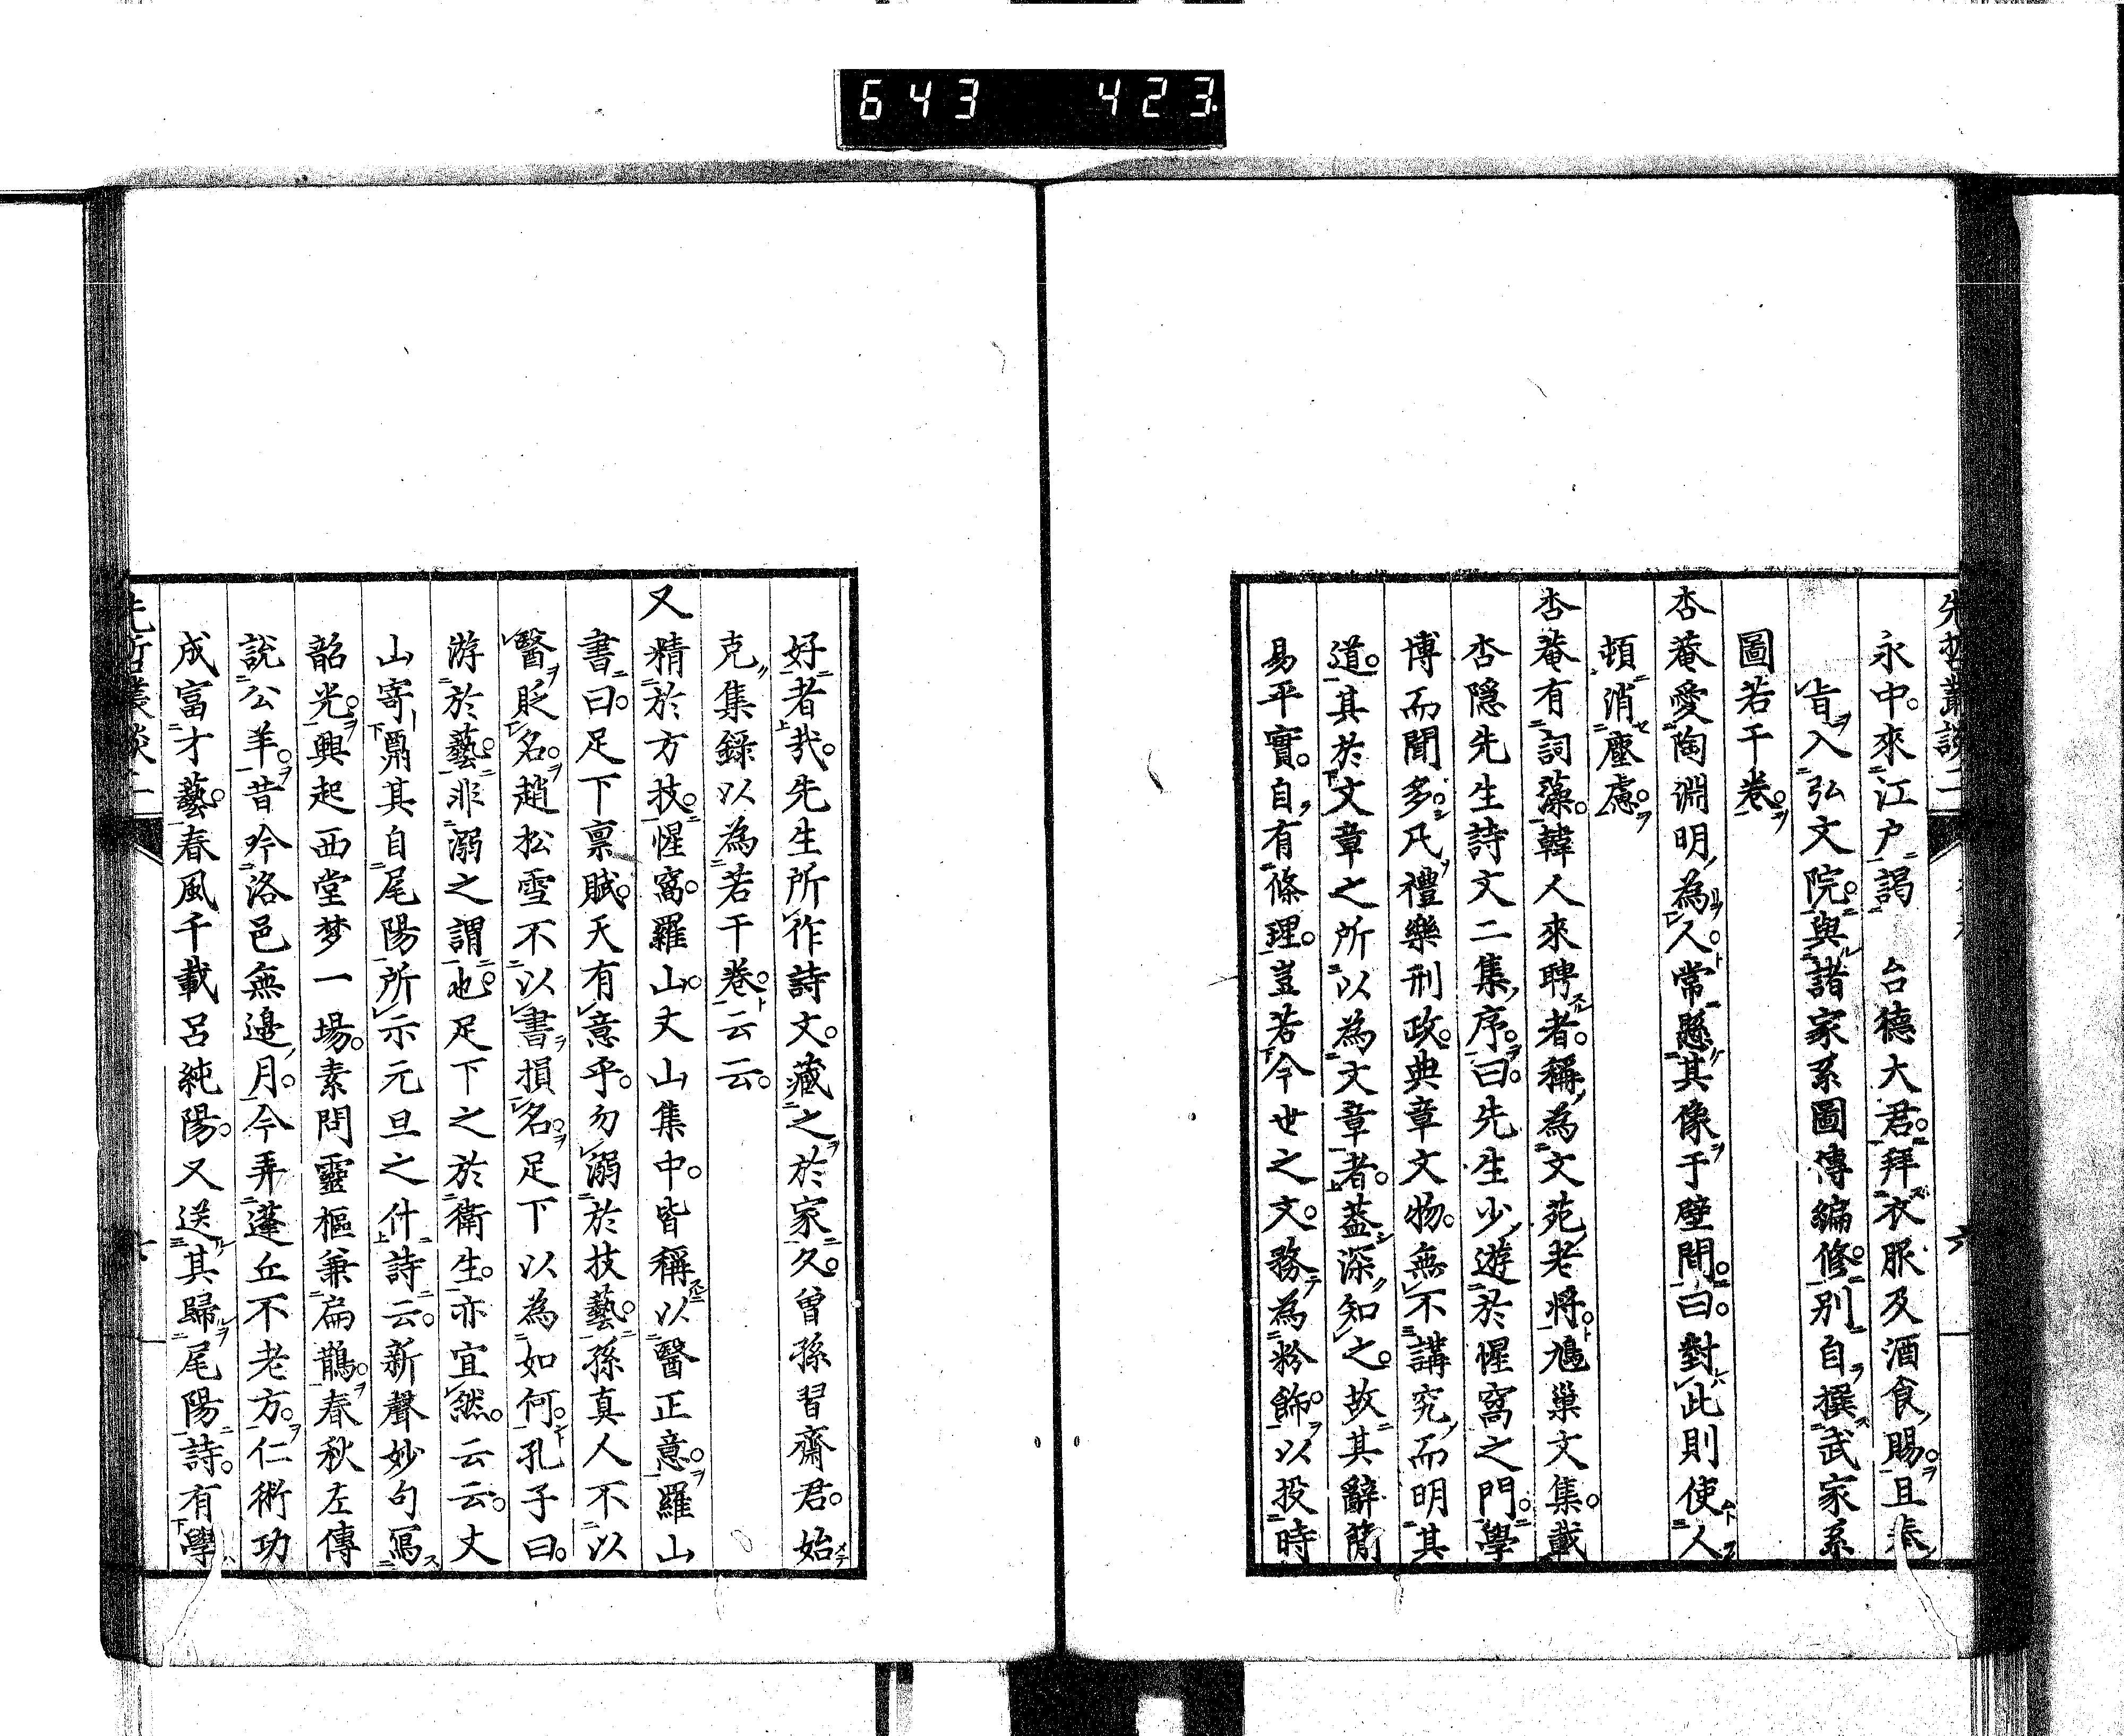 643 423
先哲叢談二
六
永中。來江户謁 台德大君。拜衣服及酒食賜。且奉
旨入弘文院。與諸家系圖傳編修。別自撰武家系
圖若干卷。
杏菴愛陶淵明為人。常懸其像于壁間。曰。對此則使人
頓消塵慮。
杏菴有詞藻。韓人來聘者。稱為文苑老將。鳩巢文集。載
杏隱先生詩文二集序。曰。先生少遊於惺窩之門。學
博而聞多。凡禮樂刑政。典章文物。無不講究。而明其
道。其於文章之所以為文章者。葢深知之。故其辭簡
易平實。自有條理。豈若今世之文。務為粉飾。以投時
好者哉。先生所作詩文。藏之於家久。曾孫習齋君。始
克集錄以為若干卷。云云。
又精於方技。惺窩。羅山。丈山集中。皆稱以醫正意。羅山
書曰。足下禀賦。天有意乎。勿溺於技藝。孫真人不以
醫貶名。趙松雪不以書損名。足下以為如何。孔子曰。
游於藝。非溺之謂也。足下之於衛生。亦宜然。云云。丈
山寄鬋其自尾陽所示元旦之什詩云。新聲妙句寫
韶光。興起西堂梦一場。素問靈樞兼扁鵲。春秋左傳
說公羊。昔吟洛邑無邊月。今弄蓬丘不老方。仁術功
成富才藝。春風千載呂純陽。又送其歸尾陽詩。有學
先哲叢談二